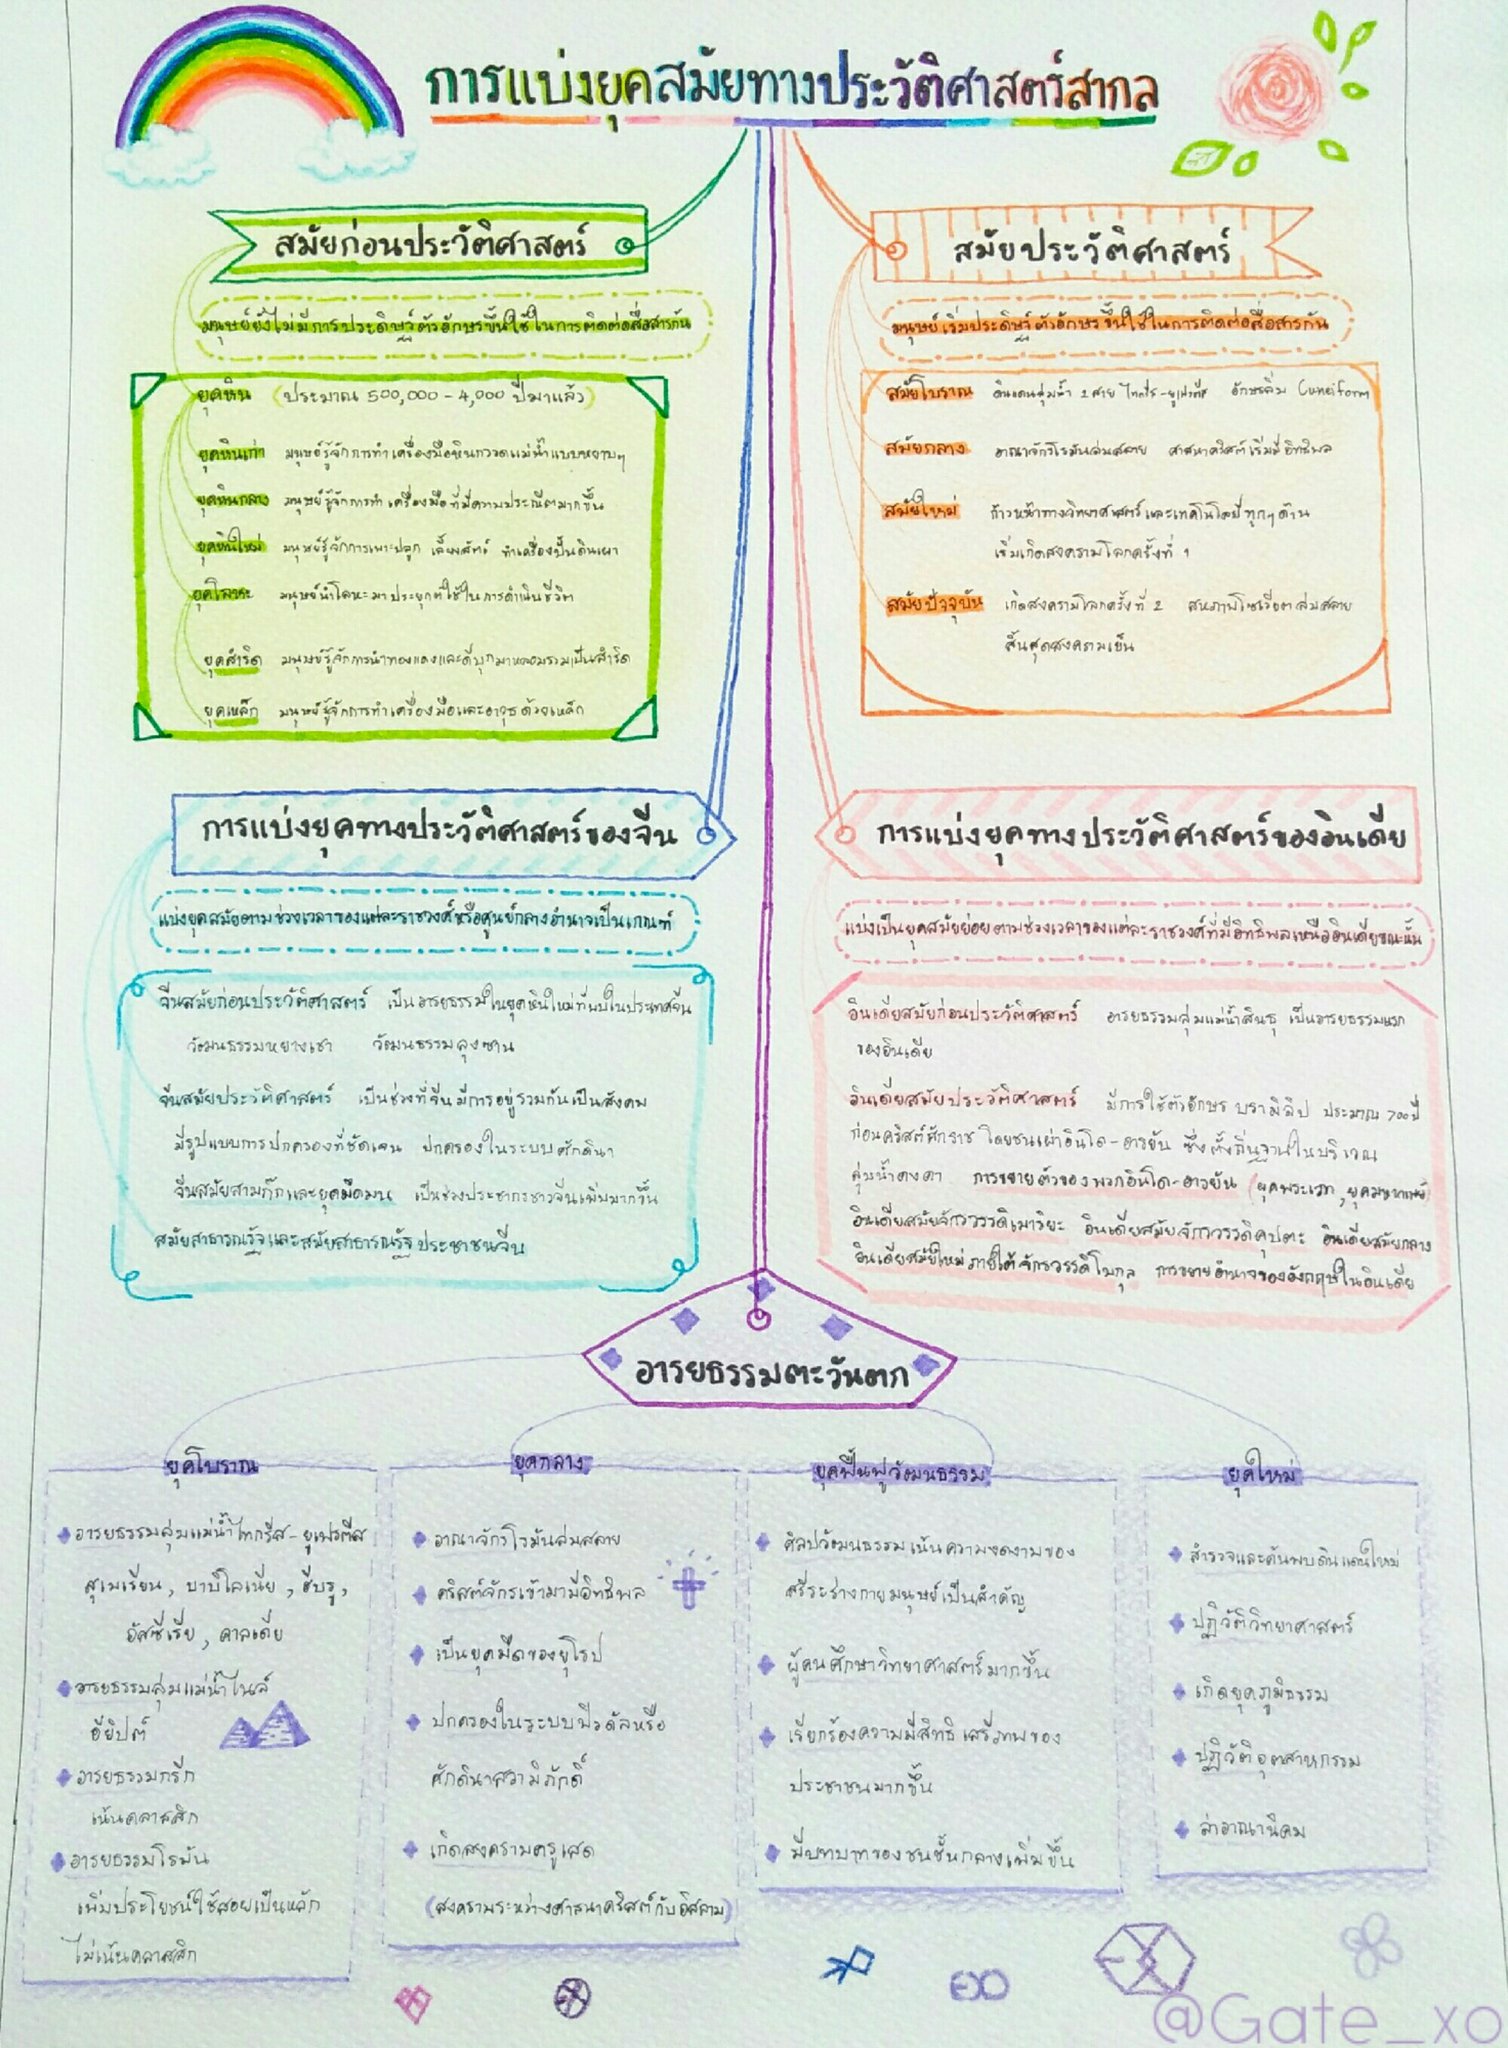 การแบ่งยุคสมัยทางประวัติศาสตร์สากล
สมัยก่อนประวัติศาสตร์
มนุษย์ยังไม่มีการประดิษฐ์ตัวอักษรขึ้นใช้ในการติดต่อสื่อสารกัน
ยุคหิน (ประมาณ 500,000 - 4,000 ปีมาแล้ว)
ยุคหินเก่า มนุษย์รู้จักการทำเครื่องมือหินกรวดแม่น้ำแบบหยาบๆ
ยุคหินกลาง มนุษย์รู้จักการทำเครื่องมือที่มีความประณีตมากขึ้น
ยุคหินใหม่ มนุษย์รู้จักการเพาะปลูก เลี้ยงสัตว์ ทำเครื่องปั้นดินเผา
ยุคโลหะ มนุษย์นำโลหะมาประยุกต์ใช้ในการดำเนินชีวิต
ยุคสำริด มนุษย์รู้จักการนำทองแดงและดีบุกมาหลอมรวมเป็นสำริด
ยุคเหล็ก มนุษย์รู้จักการทำเครื่องมือและอาวุธด้วยเหล็ก
สมัยประวัติศาสตร์
มนุษย์เริ่มประดิษฐ์ตัวอักษรขึ้นใช้ในการติดต่อสื่อสารกัน
สมัยโบราณ ดินแดนลุ่มน้ำ 2 สาย ไทกริส-ยูเฟรตีส อักษรลิ่ม Cuneiform
สมัยกลาง อาณาจักรโรมันล่มสลาย ศาสนาคริสต์เริ่มมีอิทธิพล
สมัยใหม่ ก้าวหน้าทางวิทยาศาสตร์และเทคโนโลยีทุกๆด้าน
เริ่มเกิดสงครามโลกครั้งที่ 1
สมัยปัจจุบัน เกิดสงครามโลกครั้งที่ 2 สหภาพโซเวียตล่มสลาย
สิ้นสุดสงครามเย็น
การแบ่งยุคทางประวัติศาสตร์ของจีน
แบ่งยุคสมัยตามช่วงเวลาของแต่ละราชวงศ์หรือศูนย์กลางอำนาจเป็นเกณฑ์
จีนสมัยก่อนประวัติศาสตร์ เป็นอารยธรรมในยุคหินใหม่ที่พบในประเทศจีน
วัฒนธรรมหยางเชา วัฒนธรรมลุงซาน
จีนสมัยประวัติศาสตร์ เป็นช่วงที่จีนมีการอยู่รวมกันเป็นสังคม
มีรูปแบบการปกครองที่ชัดเจน ปกครองในระบบศักดินา
จีนสมัยสามก๊กและยุคมืดมน เป็นช่วงประชากรชาวจีนเพิ่มมากขึ้น
สมัยสาธารณรัฐและสมัยสาธารณรัฐประชาชนจีน
การแบ่งยุคทางประวัติศาสตร์ของอินเดีย
แบ่งเป็นยุคสมัยย่อยตามช่วงเวลาของแต่ละราชวงศ์ที่มีอิทธิพลเหนืออินเดียขณะนั้น
อินเดียสมัยก่อนประวัติศาสตร์ อารยธรรมลุ่มแม่น้ำสินธุ เป็นอารยธรรมแรก
ของอินเดีย
อินเดียสมัยประวัติศาสตร์ มีการใช้ตัวอักษร บรามิลิป ประมาณ 700 ปี
ก่อนคริสต์ศักราช โดยชนเผ่าอินโด-อารยัน ซึ่งตั้งถิ่นฐานในบริเวณ
ลุ่มน้ำคงคา การขยายตัวของพวกอินโด-อารยัน (ยุคพระเวท, ยุคมหากาพย์)
อินเดียสมัยจักรวรรดิเมาริยะ อินเดียสมัยจักรวรรดิคุปตะ อินเดียสมัยกลาง
อินเดียสมัยใหม่ภายใต้จักรวรรดิโมกุล การขยายอำนาจของอังกฤษในอินเดีย
อารยธรรมตะวันตก
ยุคโบราณ
อารยธรรมลุ่มแม่น้ำไทกริส-ยูเฟรตีส
สุเมเรียน, บาบิโลเนีย, ฮีบรู,
อัสซีเรีย, คาลเดีย
อารยธรรมลุ่มแม่น้ำไนล์
อียิปต์
อารยธรรมกรีก
เน้นคลาสสิก
อารยธรรมโรมัน
เพิ่มประโยชน์ใช้สอยเป็นหลัก
ไม่เน้นคลาสสิก
ยุคกลาง
อาณาจักรโรมันล่มสลาย
คริสต์จักรเข้ามามีอิทธิพล
เป็นยุคมืดของยุโรป
ปกครองในระบบฟิวดัลหรือ
ศักดินาสวามิภักดิ์
เกิดสงครามครูเสด
(สงครามระหว่างศาสนาคริสต์กับอิสลาม)
ยุคฟื้นฟูวัฒนธรรม
ศิลปวัฒนธรรมเน้นความงดงามของ
สรีระร่างกายมนุษย์เป็นสำคัญ
ผู้คนศึกษาวิทยาศาสตร์มากขึ้น
เรียกร้องความมีสิทธิเสรีภาพของ
ประชาชนมากขึ้น
มีบทบาทของชนชั้นกลางเพิ่มขึ้น
ยุคใหม่
สำรวจและค้นพบดินแดนใหม่
ปฏิวัติวิทยาศาสตร์
เกิดยุคภูมิธรรม
ปฏิวัติอุตสาหกรรม
ล่าอาณานิคม
EXO
@Gate_xo